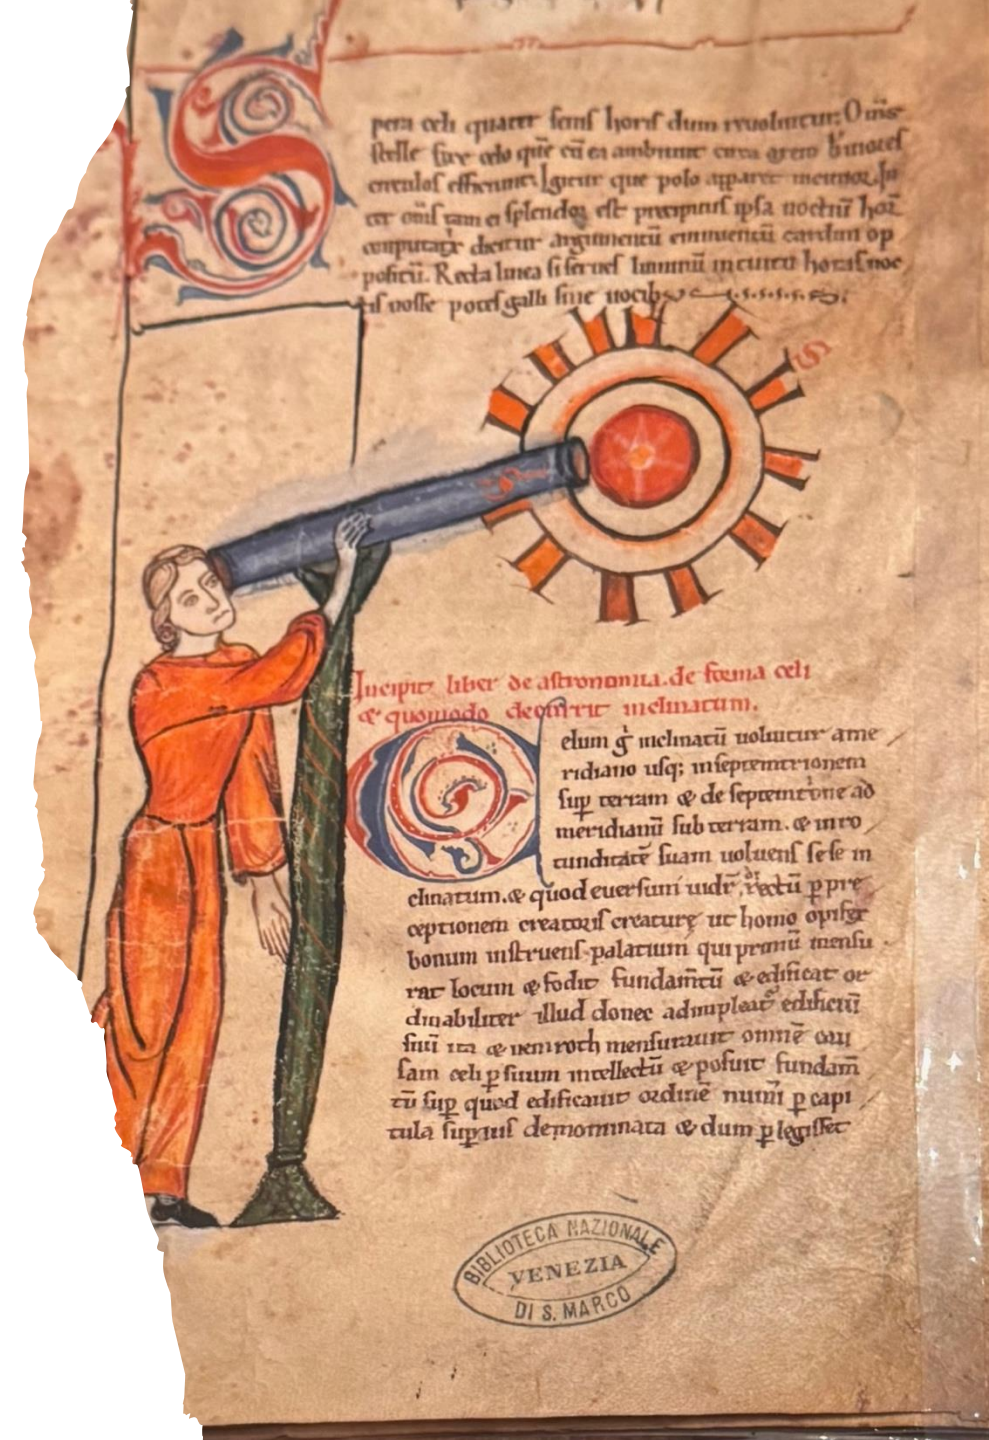 S
pera celi quater senis horis dum reuoluitur: Om̄s
stelle fixe celo quē cū ea ambiunt circa axem breuiores
circulos efficiunt. Igitur que polo apparet
cet om̄s tam ei splendor est precipuus ipsa noctiū hor̄
computatrix dicitur argumentū eminentū cardini op
positū. Recta linea si serues luminū in cuncti horis noc
tis nosse potes galli sine uocib;
S
Incipit liber de astronomia. de forma celi
& quomodo decurrit inclinatum.
C
elum g̊ inclinatū uoluitur a me
ridiano usq; in septemtrionem
sup terram & de septemtrione ad
meridianū sub terram. & in ro
tunditate suam uoluens sese in
clinatum. & quod euersum uidr̄ rectū p pre
ceptionem creatoris creature ut homo opifex
bonum instruens palatium qui primū mensu
rat locum & fodit fundam̄tū & edificat or
dinabiliter illud donec adimpleat edificiū
suū ita & nemroth mensurauit omnē cau
sam celi p suum intellectū & posuit fundam̄
tū sup quod edificauit ordinē num̄i p capi
tula superius denominata & dum plegisset
BIBLIOTECA NAZIONALE
VENEZIA
DI S. MARCO